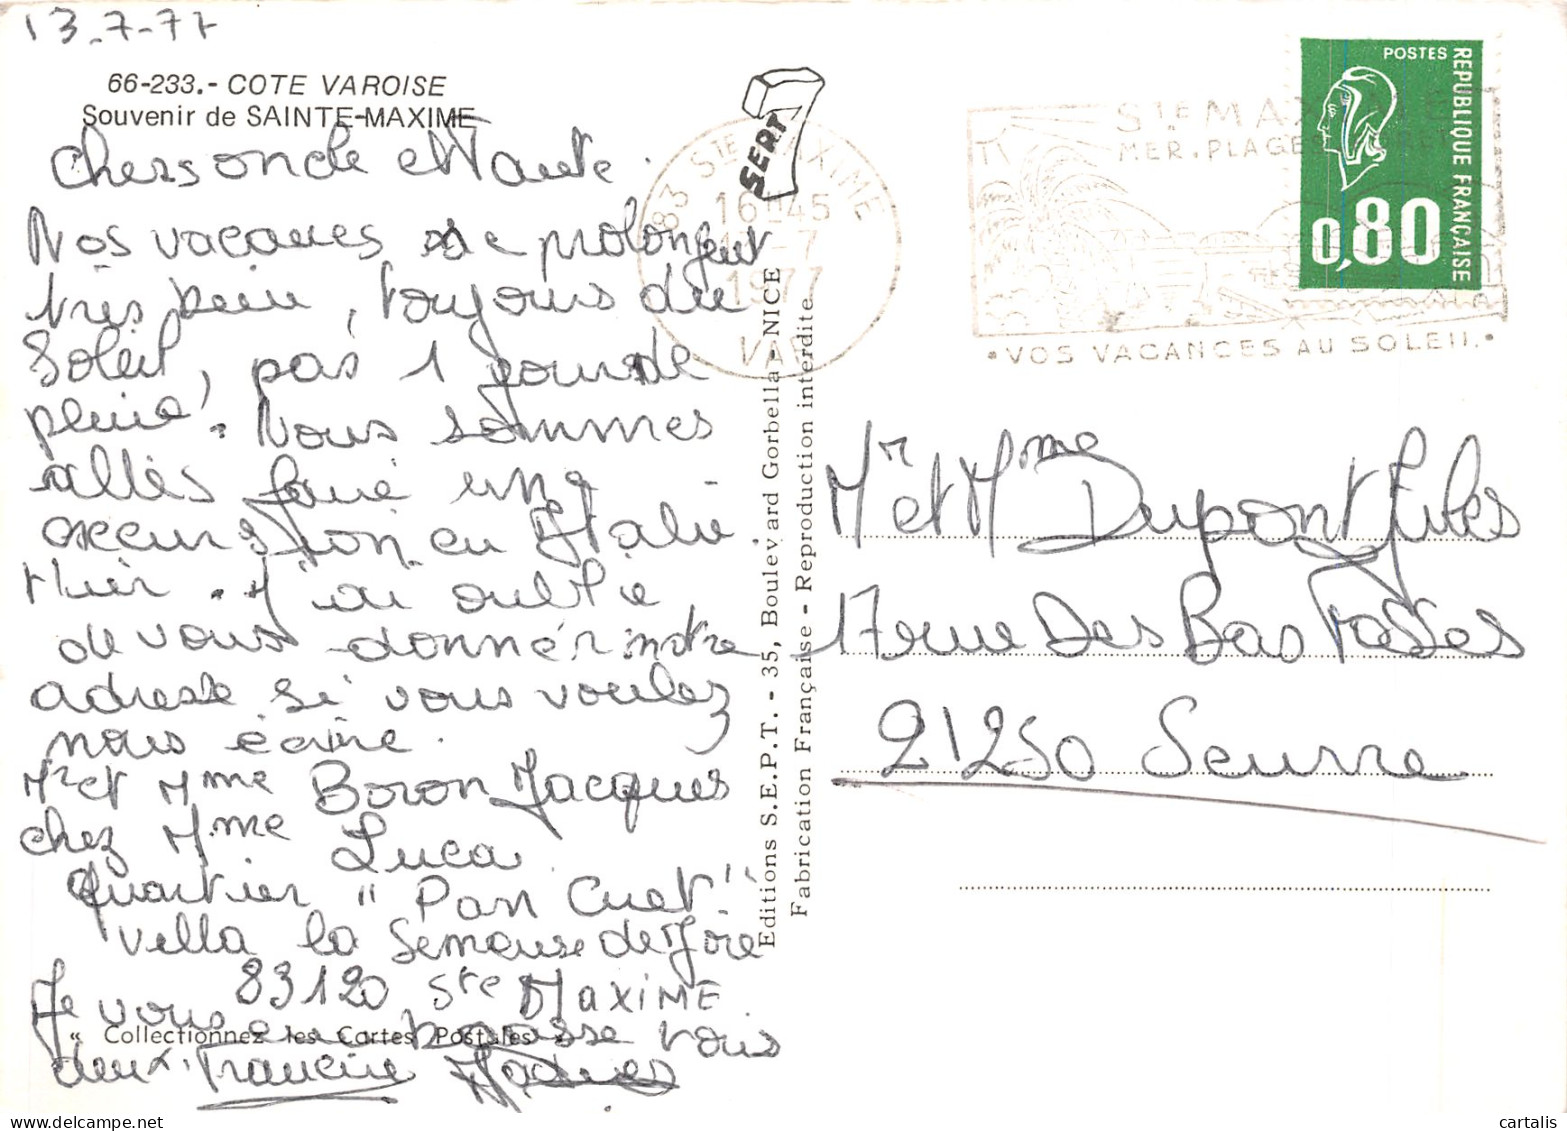 13-7-77
66-233.- COTE VAROISE
Souvenir de SAINTE-MAXIME
Chers oncle et tante.
Nos vacances se prolongent
très bien, toujours du
Soleil, pas 1 jour de
pluie! Nous sommes
allés faire une
excurstion en Italie.
Hier. J'ai oublie
de vous donner notre
adresse si vous voulez
nous écrire.
Mr et Mme Boron Jacques
chez Mme Luca
quartier "Pan Cuet"
villa la Semeuse de Joie
83120 Ste MAXIME
Je vous embrasse vous
« Collectionnez les Cartes Postales »
deux. Francine Jacques
SEPT
83 STE MAXIME
16H45
-7
1977
VAR
Editions S.E.P.T. - 35, Boulevard Gorbella - NICE
Fabrication Française - Reproduction interdite
STE MAXIME
MER.PLAGES
•VOS VACANCES AU SOLEIL.•
POSTES
REPUBLIQUE FRANÇAISE
0,80
Mr et Mme Dupont Jules
17 rue Des Bas Fossés
21250 Seurre
cartalis
www.delcampe.net